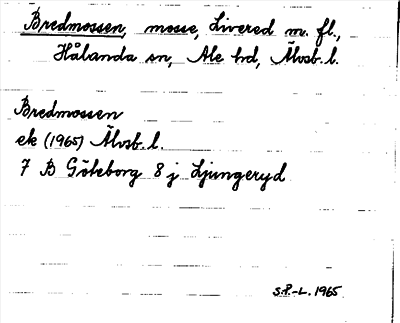 Bredmossen, mosse, Livered m. fl.,
Hålanda sn, Ale hd, Älvsb. l.
Bredmossen
ek (1965) Älvsb. l.
7 B Göteborg 8 j Ljungeryd
S.P.-L. 1965